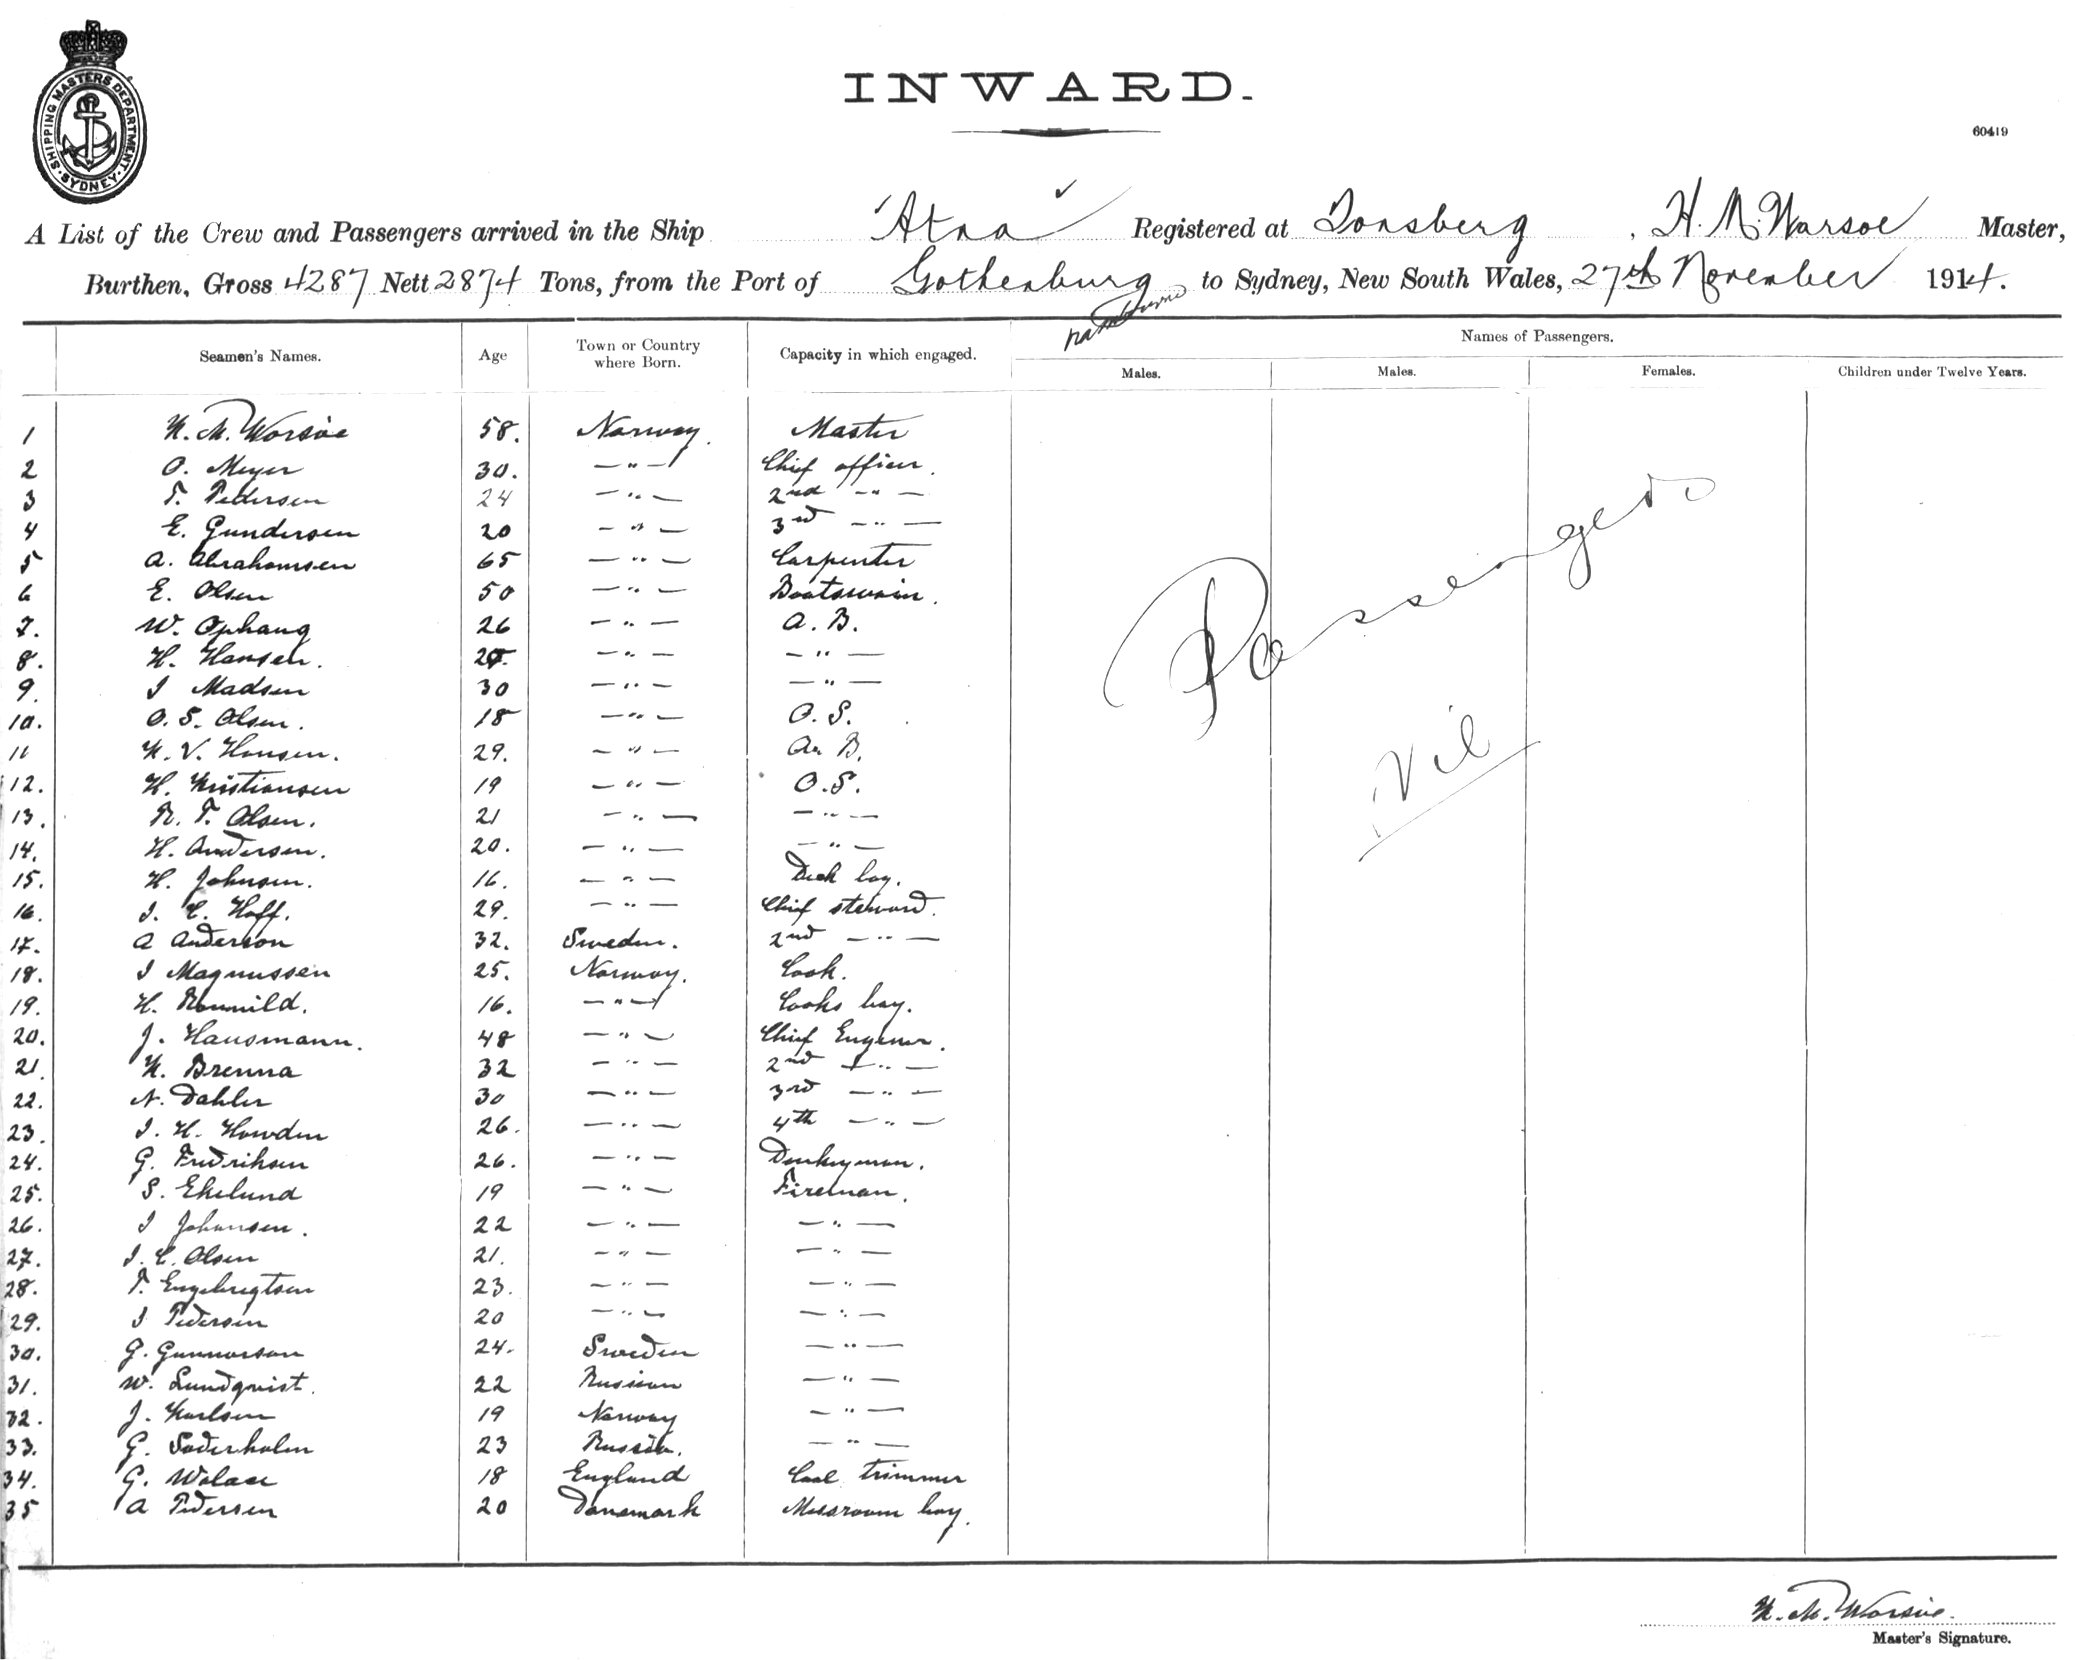 SHIPPING MASTERS DEPARTMENT
SYDNEY
INWARD.
60419
A List of the Crew and Passengers arrived in the Ship "Atna" Registered at Tonsberg, H. M. Warsoe Master,
Burthen, Gross 4287 Nett 2874 Tons, from the Port of Gothenburg to Sydney, New South Wales, 27th November 1914.
Seamen's Names. Age Town or Country where Born. Capacity in which engaged. Names of Passengers.
Males. Males. Females. Children under Twelve Years.
1 K. M. Worsöe 58. Norway. Master
2 O. Meyer 30. —"— Chief officer.
3 T. Pedersen 24 —"— 2nd —"—
4 E. Gundersen 20 —"— 3rd —"—
5 A. Abrahamsen 65 —"— Carpenter
6 E. Olsen 50 —"— Boatswain.
7. W. Ophaug 26 —"— A. B.
8. H. Hansen. —"— —"—
9. I Madsen 30 —"— —"—
10. O. S. Olsen. 18 —"— O. S.
11 K. V. Hansen. 29. —"— A. B.
12. H. Kristiansen 19 —"— O. S.
13. R. T. Olsen. 21 —"— —"—
14. H. Andersen. 20. —"— —"—
15. H. Johnsen. 16. —"— Deck boy.
16. I. C. Hoff. 29. —"— Chief steward.
17. A Anderson 32. Sweden. 2nd —"—
18. I Magnussen 25. Norway. Cook.
19. H. 16. —"— Cooks boy.
20. J. Hausmann. 48 —"— Chief Engener.
21. K. Brenna 32 —"— 2nd —"—
22. N. Dahler 30 —"— 3rd —"—
23. I. H. Howden 26. —"— 4th —"—
24. G. Fredriksen 26. —"— Donkeyman.
25. S. Ekelund 19 —"— Fireman.
26. I Johansen. 22 —"— —"—
27. I. C. Olsen 21. —"— —"—
28. T. Engebregtsen 23. —"— —"—
29. I Pedersen 20 —"— —"—
30. G. Gunnarson 24. Sweden —"—
31. W. Lundqvist. 22 Russian —"—
32. J. Karlsen 19 Norway —"—
33. G. Soderholm 23 Russia. —"—
34. G. Walace 18 England Coal trimmer
35 A Pedersen 20 Danemark Messroom boy.
Passengers
Nil
K. M. Worsöe.
Master's Signature.